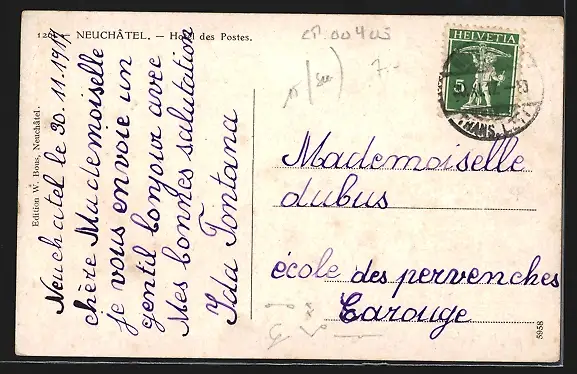 NEUCHÂTEL. — Hôtel des Postes.
Edition W. Bous, Neuchâtel.
Neuchatel le 30.11.1917
chère Mademoiselle
je vous envoie un
gentil bonjour avec
Mes bonnes salutation
Ida Fontana
HELVETIA
5
TRANS.
Mademoiselle
dubus
école des pervenches
Carouge
5958